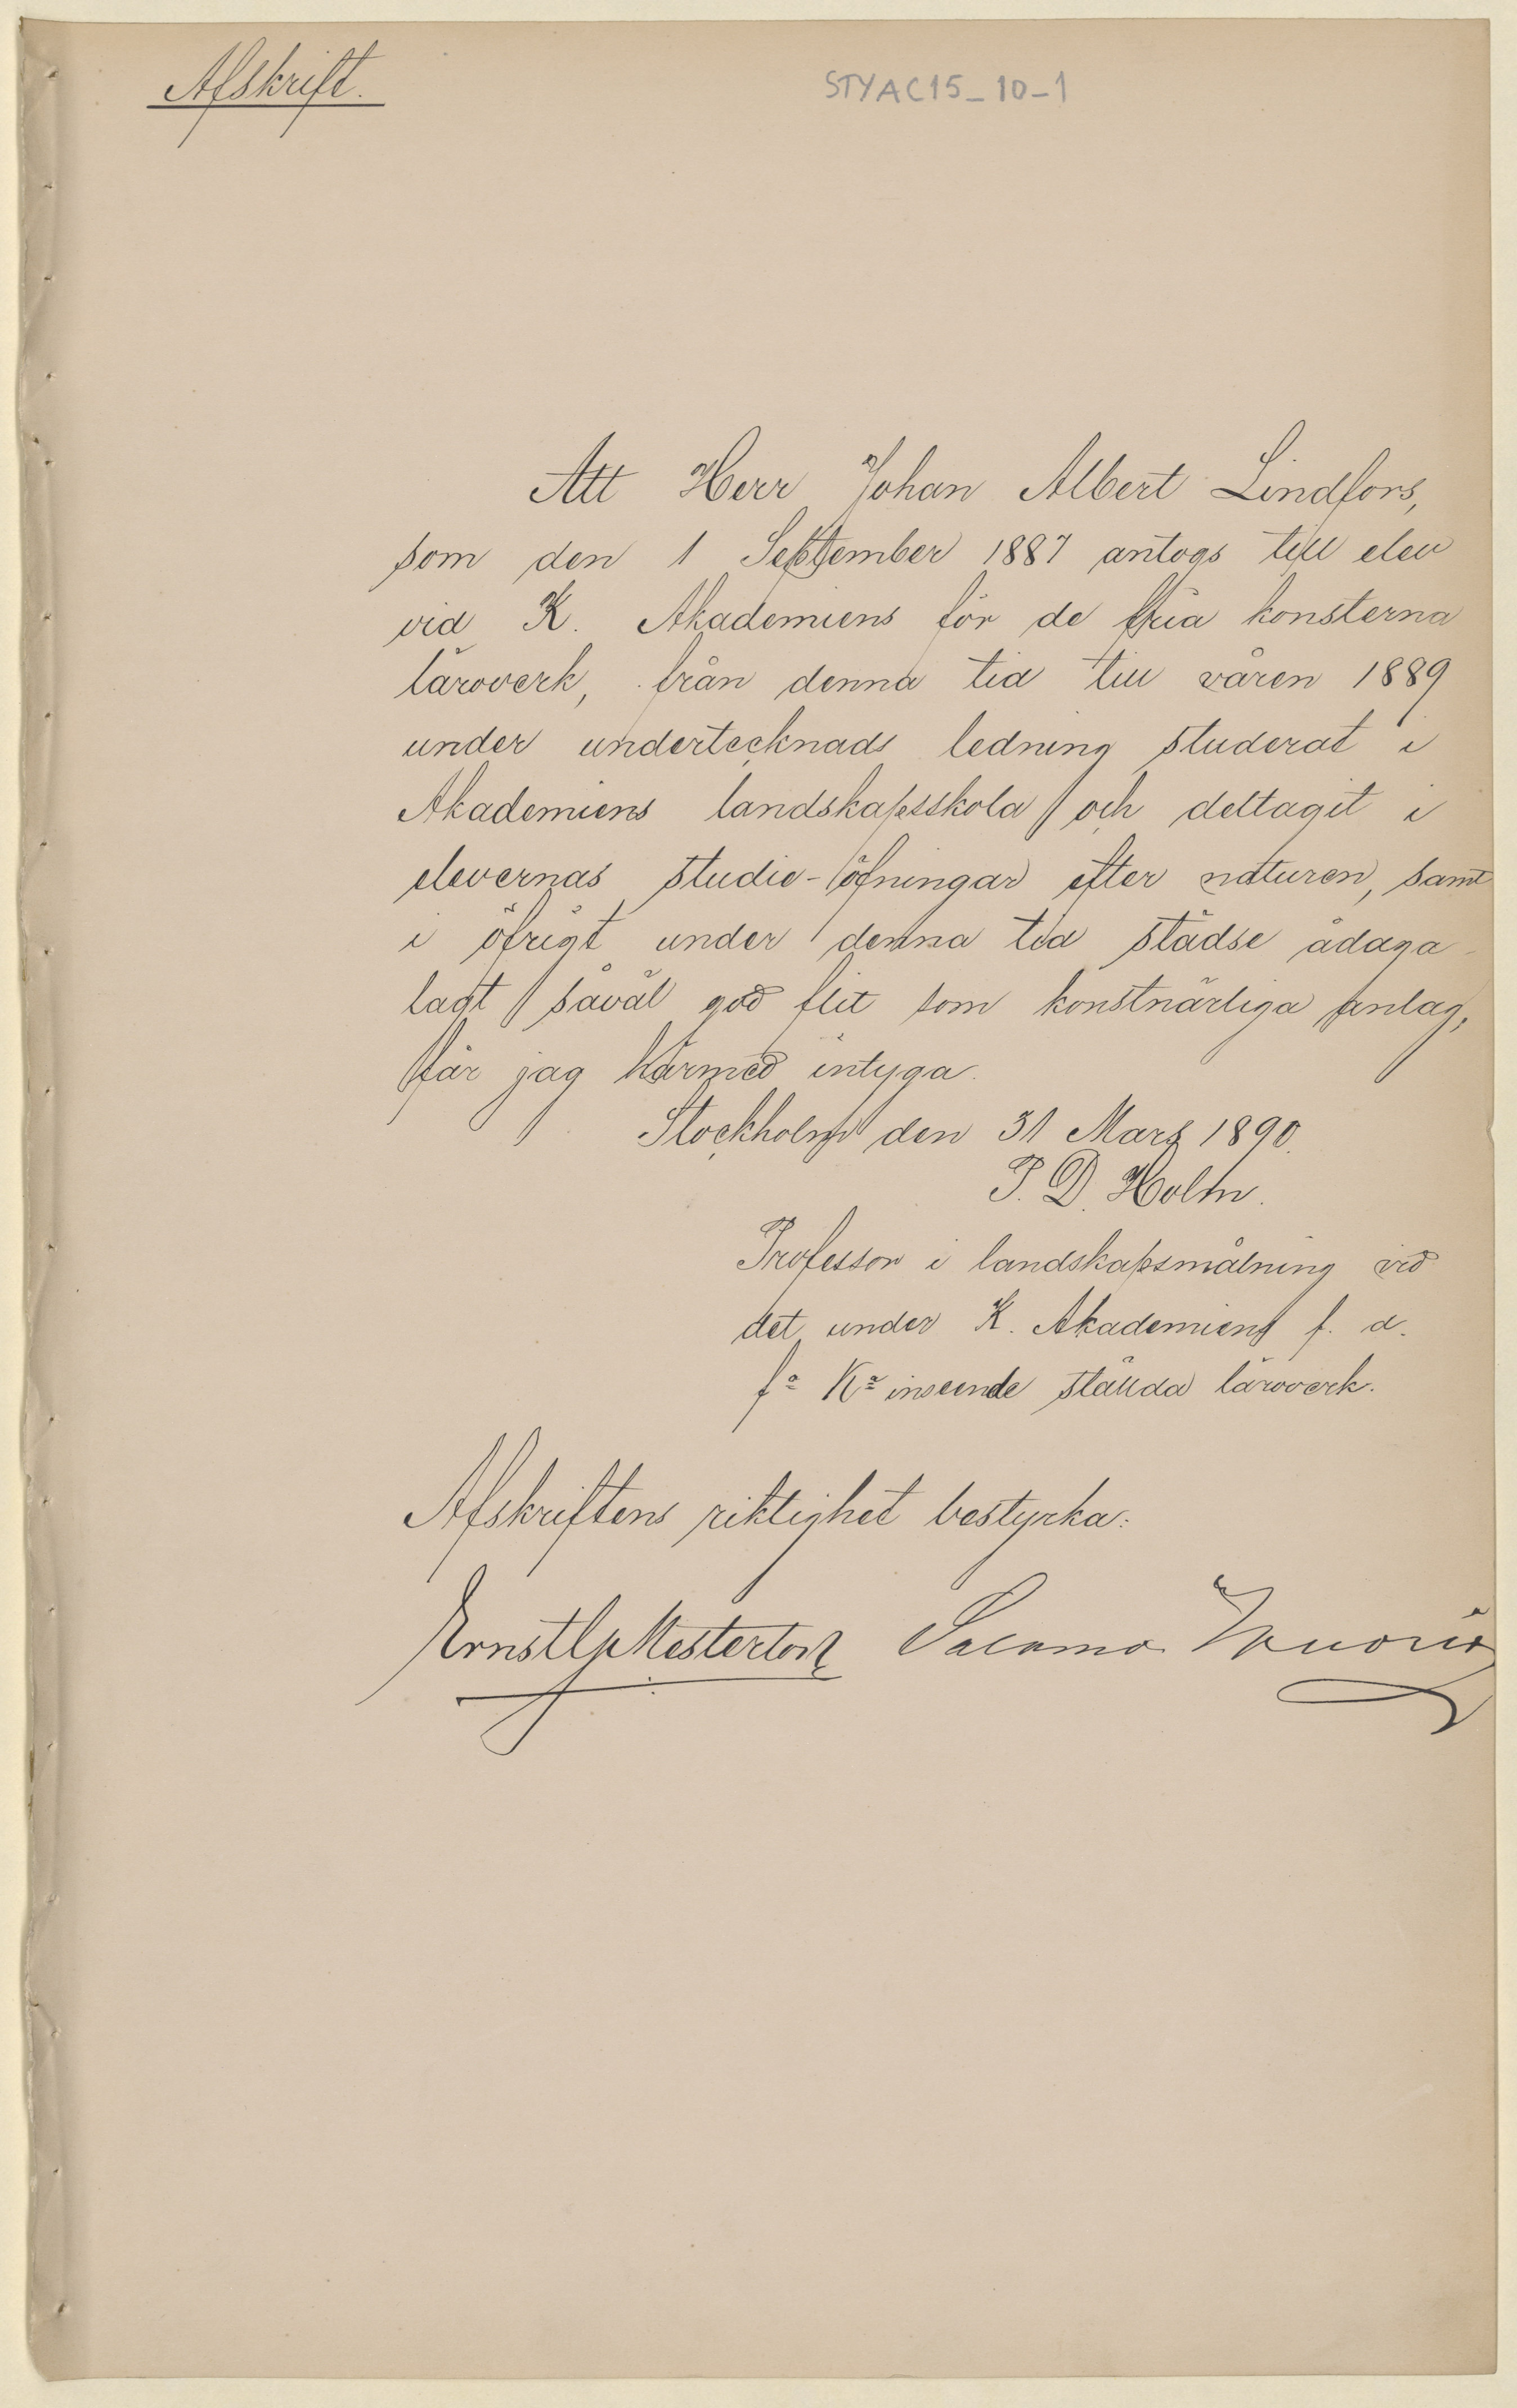 Afskrift.
STYAC15_10-1
Att Herr Johan Albert Lindfors,
som den 1 September 1887 antogs till elev
vid K. Akademiens för de fria konsterna
läroverk, från denna tid till våren 1889
under undertecknads ledning studerat i
Akademiens landskapsskola och deltagit i
elevernas studie-öfningar efter naturen, samt
i öfrigt under denna tid städse ådaga-
lagt såväl god flit som konstnärliga anlag,
får jag härmed intyga.
Stockholm den 31 Mars 1890.
P. D. Holm.
Professor i landskapsmålning vid
det under K. Akademiens f. d.
fa Kr inseende ställda läroverk.
Afskriftens riktighet bestyrka:
Ernst